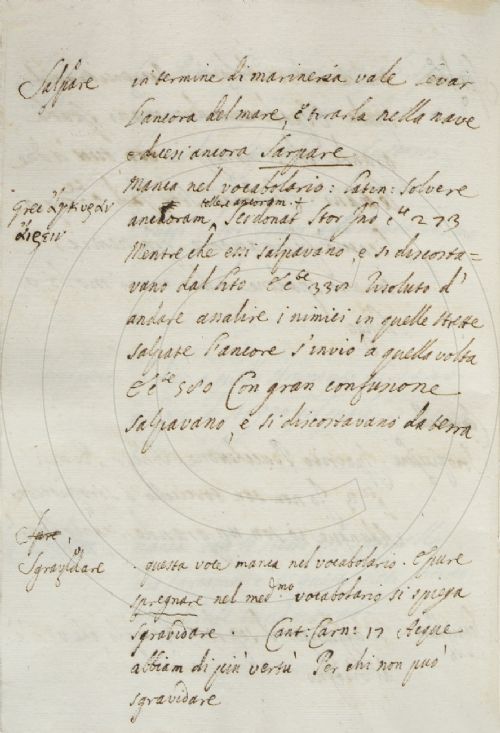 Salpare
in termine di marineria vale Levar
l'ancora del mare, e tirarla nella nave
e dicesi ancora Sarpare
manca nel vocabolario: Latin: solvere
Grec ἄγκυραν
αἴρειν
tollere ancoram
anchoram, Serdonat Stor Ind cte 273
Mentre che essi salpavano, e si discosta=
vano dal lito & cte 330 Risoluto d'
andare assalire i nimici in quelle strette
salpate l'ancore s'inviò a quella volta
& cte 580 Con gran confusione
salpavano, e si discostavano da terra
Sgravidare
questa voce manca nel vocabolario. Eppure
spregnare nel medmo vocabolario si spiega
sgravidare. Cant: Carn: 17 Acque
abbiam di più vertù Per chi non può
sgravidare